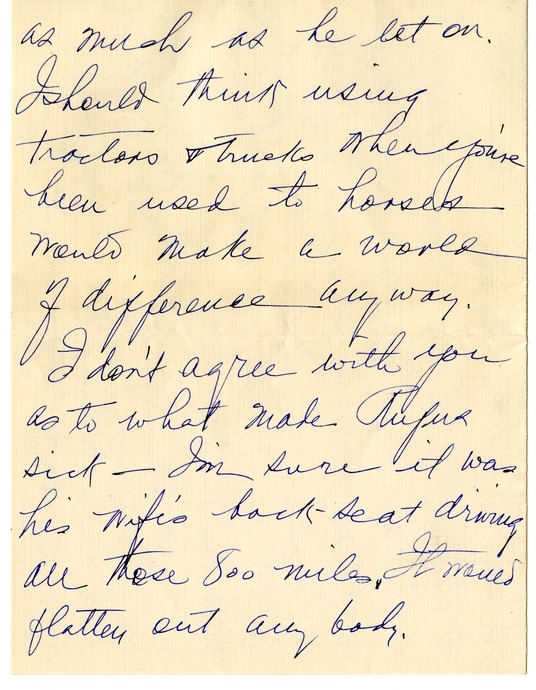 as much as he let on.
I should think using
tractors & trucks when you're
been used to horses
would make a world
of difference anyway.
I don't agree with you
as to what made Rufus
sick — I'm sure it was
his wife's back-seat driving
all those 800 miles. It would
flatten out any body.